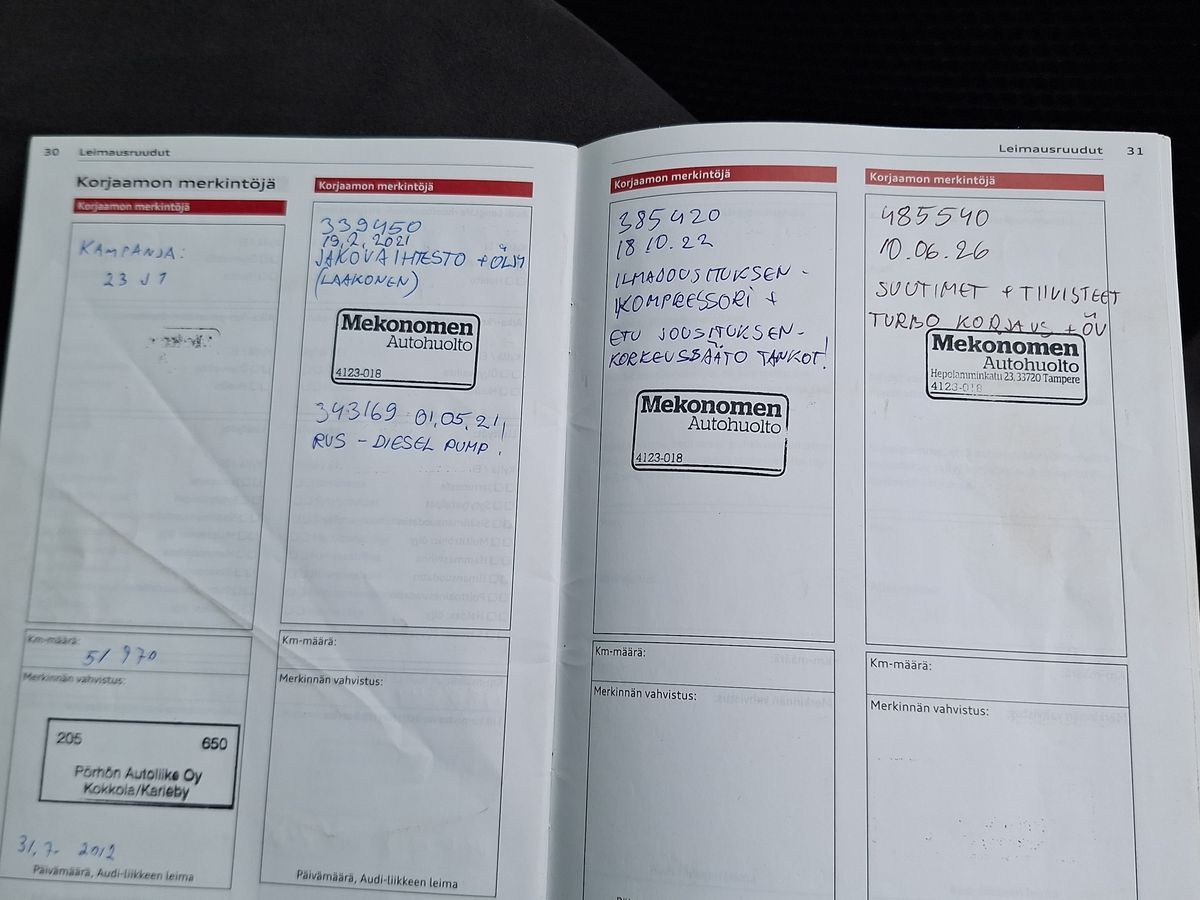 30 Leimausruudut
Korjaamon merkintöjä
Korjaamon merkintöjä
KAMPANJA:
23 J 1
Km-määrä:
51 970
Merkinnän vahvistus:
205 650
Pörhön Autoliike Oy
Kokkola/Karleby
31.7- 2012
Päivämäärä, Audi-liikkeen leima
Korjaamon merkintöjä
339450
19.2.2021
JAKOVAIHTESTO + ÖLJY
(LAAKONEN)
Mekonomen
Autohuolto
4123-018
343169 01.05.21,
RUS - DIESEL PUMP!
Km-määrä:
Merkinnän vahvistus:
Päivämäärä, Audi-liikkeen leima
Leimausruudut 31
Korjaamon merkintöjä
385420
18.10.22
ILMAJOUSITUKSEN -
KOMPRESSORI +
ETU JOUSITUKSEN-
KORKEUSSÄÄTÖ TANKOT!
Mekonomen
Autohuolto
4123-018
Km-määrä:
Merkinnän vahvistus:
Korjaamon merkintöjä
485540
10.06.26
SUUTIMET + TIIVISTEET
TURBO KORJAUS + ÖV
Mekonomen
Autohuolto
Hepolamminkatu 23, 33720 Tampere
4123-018
Km-määrä:
Merkinnän vahvistus: